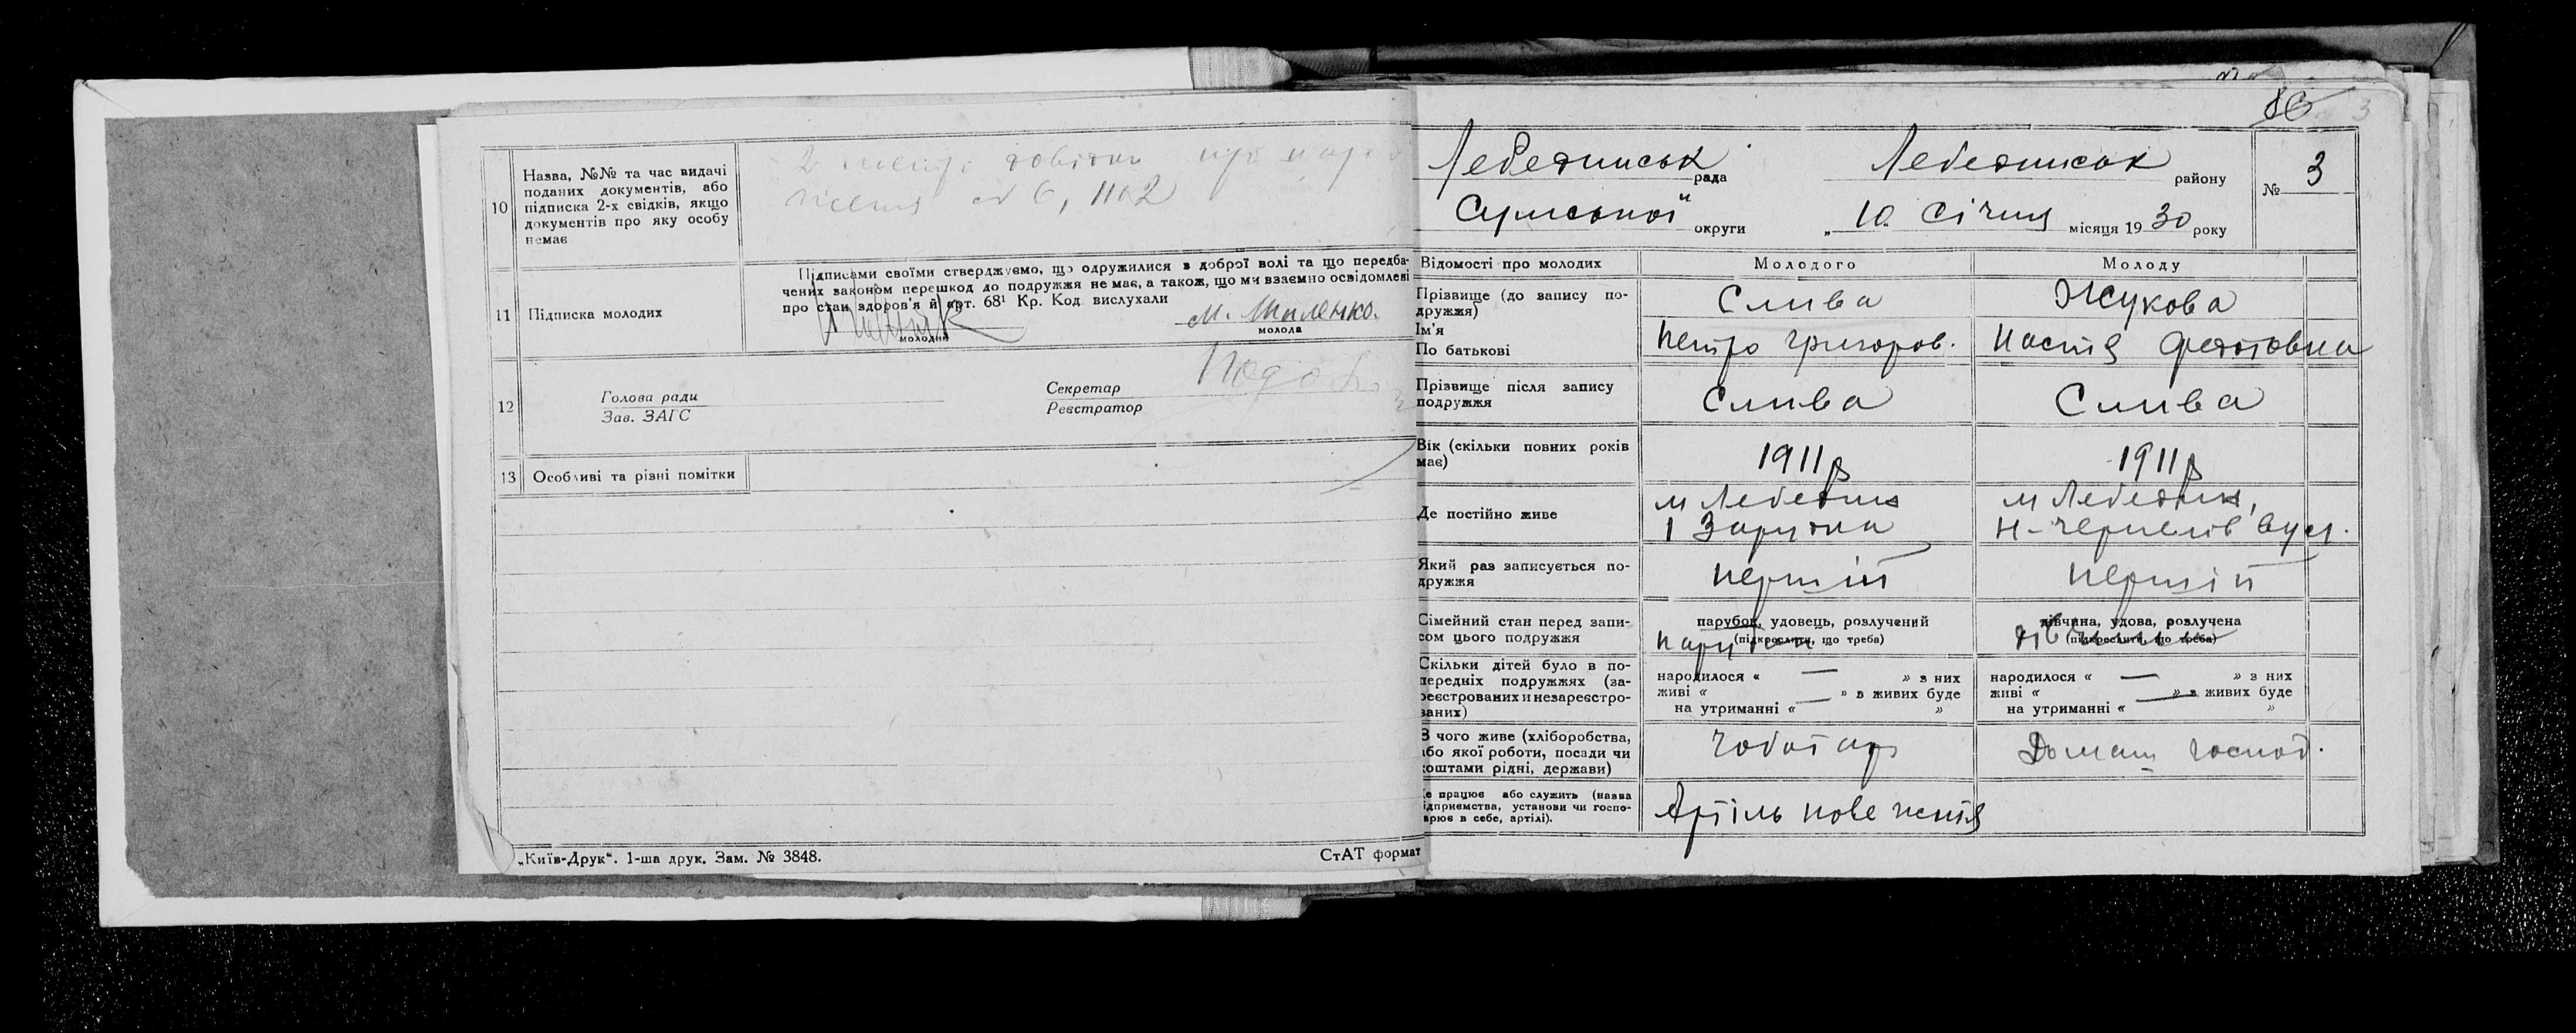 10
Назва, №№ та час видачі
поданих документів, або
підписка 2-х свідків, якщо
документів про яку особу
немає
2 метр. довідки про народ
ження
11
Підписка молодих
Підписами своїми стверджуємо, що одружилися в доброї волі та що передба-
чених законом перешкод до подружжя немає, а також, що ми взаємно освідомлені
про стан здоров'я й арт. 68¹ Кр. Код вислухали
молодий
М.
молода
12
Голова ради
Зав. ЗАГС
Секретар
Реєстратор
13
Особливі та різні помітки
„Київ-Друк“. 1-ша друк. Зам. № 3848.
СтАТ формат
3
Лебединськ рада
Лебединськ району
№ 3
Сумської округи
„ 10 „ Січня місяця 1930 року
Відомості про молодих
Молодого
Молоду
Прізвище (до запису по-
дружжя)
Слива
Жукова
Ім'я
По батькові
Петро Григоров.
Настя Федотовна
Прізвище після запису
подружжя
Слива
Слива
Вік (скільки повних років
має)
1911р
1911р
Де постійно живе
м Лебедин
1 Зарудка
м Лебедин,
вул.
Який раз записується по-
дружжя
перший
перший
Сімейний стан перед запи-
сом цього подружжя
парубок, удовець, розлучений
(підкреслити, що треба)
парубок
дівчина, удова, розлучена
(підкреслити, що треба)
дівчина
Скільки дітей було в по-
передніх подружжях (за-
реєстрованих и незареєстро-
ваних)
народилося « — » з них
живі « — » в живих буде
на утриманні « »
народилося « — » з них
живі « — » в живих буде
на утриманні « »
З чого живе (хліборобства,
або якої роботи, посади чи
коштами рідні, держави)
Чоботар
Домаш господ.
Де працює або служить (назва
підприємства, установи чи госпо-
дарює в себе, артілі).
Артіль нове життя